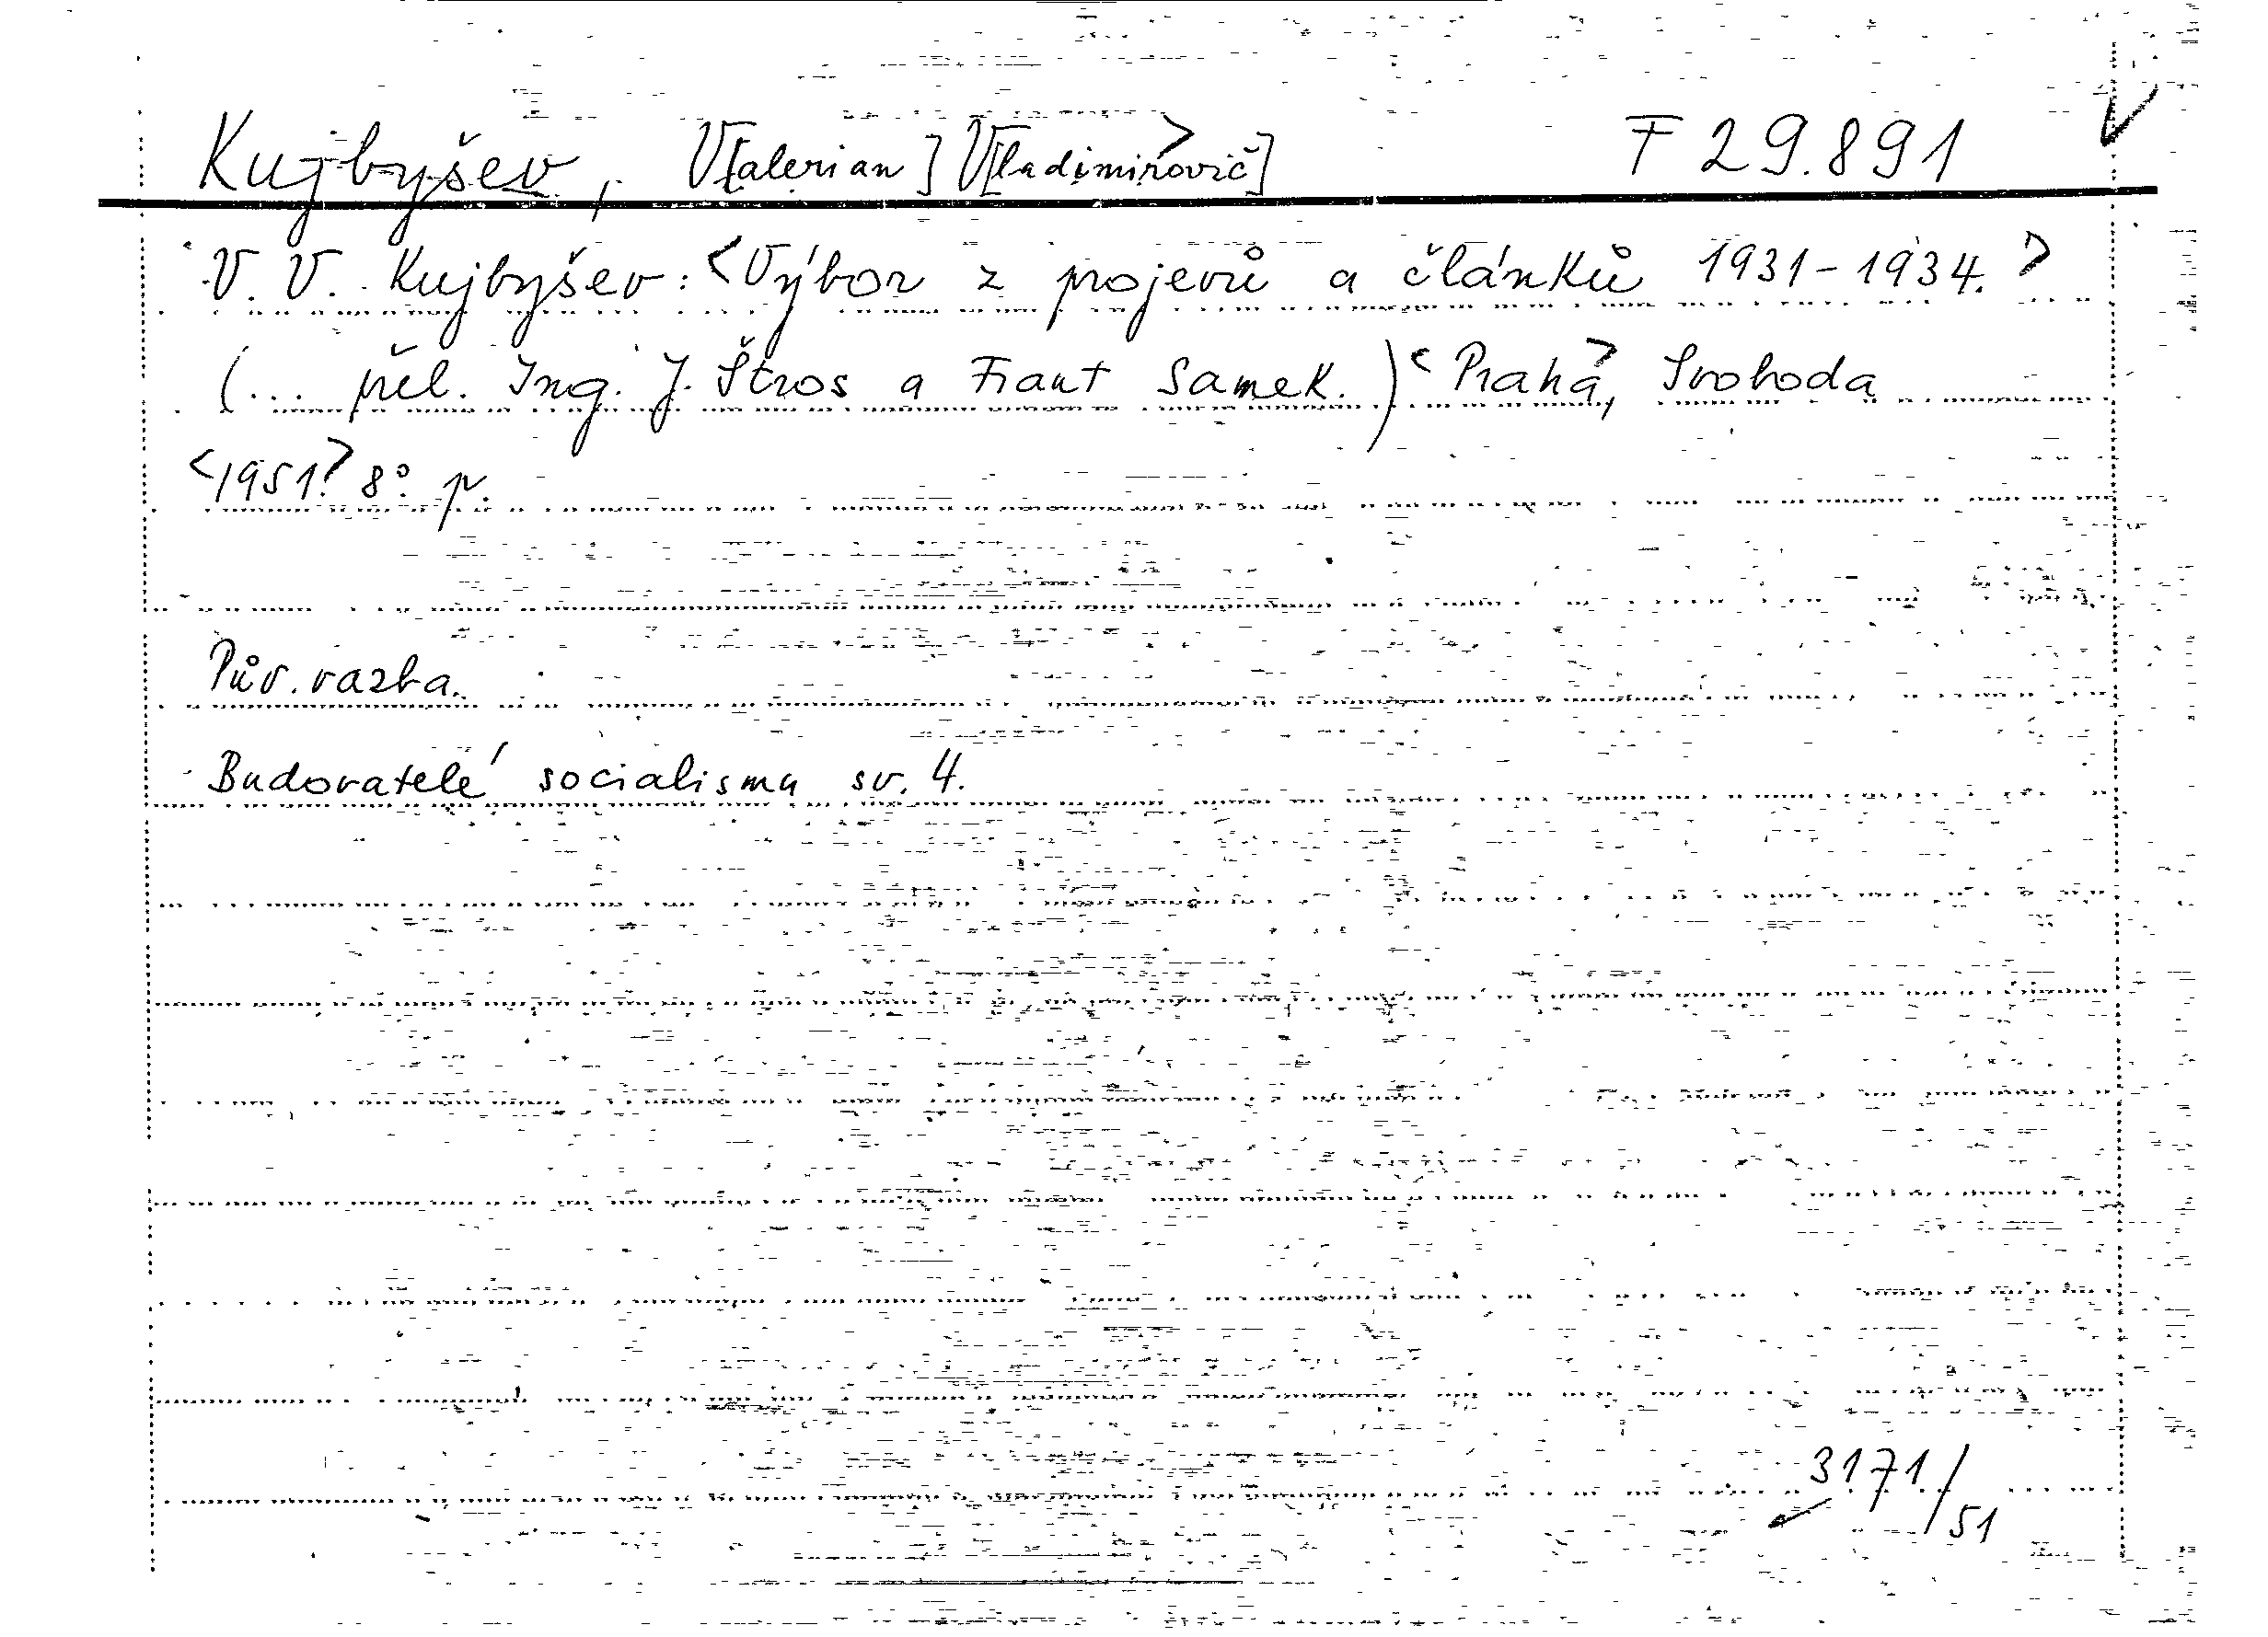 Kujbyšev, V[alerian] V[ladimirovič] F 29.891
V. V. Kujbyšev: <Výbor z projevů a článků 1931-1934.>
(... přel. Ing. J. Štros a Frant Samek.) <Praha>, Svoboda
<1951.> 8° p.
Pův. vazba.
Budovatelé socialismu sv. 4.
3171/51